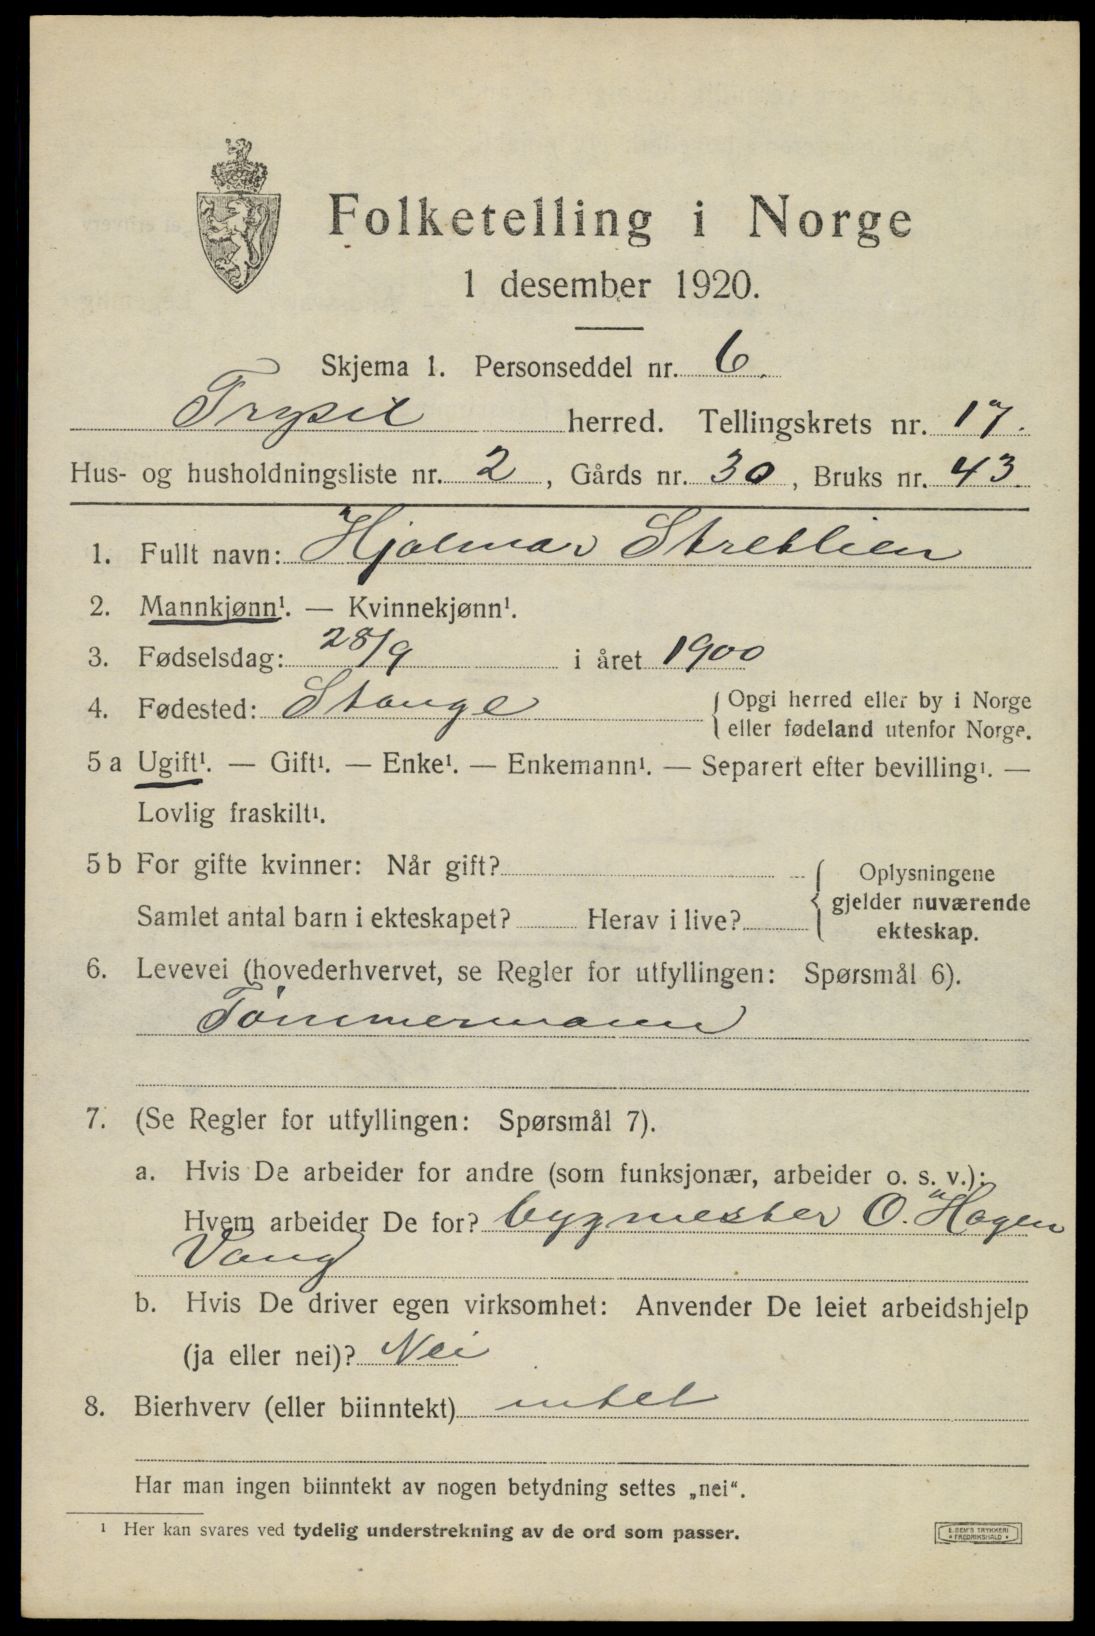 Folketelling i Norge
1 desember 1920.
Skjema 1. Personseddel nr. 6.
Trysil herred. Tellingskrets nr. 17.
Hus- og husholdningsliste nr. 2, Gårds nr. 30, Bruks nr. 43.
1. Fullt navn: Hjalmar Stretlien
2. Mannkjønn¹. — Kvinnekjønn¹.
3. Fødselsdag: 28/9 i året 1900
4. Fødested: Stange { Opgi herred eller by i Norge
{ eller fødeland utenfor Norge.
5 a Ugift¹. — Gift¹. — Enke¹. — Enkemann¹. — Separert efter bevilling¹. —
Lovlig fraskilt¹.
5 b For gifte kvinner: Når gift? { Oplysningene
gjelder nuværende
Samlet antal barn i ekteskapet? Herav i live?
ekteskap.
6. Levevei (hovederhvervet, se Regler for utfyllingen: Spørsmål 6).
Tømmermann
7. (Se Regler for utfyllingen: Spørsmål 7).
a. Hvis De arbeider for andre (som funksjonær, arbeider o. s. v.):
Hvem arbeider De for? bygmester O. Hagen
Vang
b. Hvis De driver egen virksomhet: Anvender De leiet arbeidshjelp
(ja eller nei)? Nei
8. Bierhverv (eller biinntekt) intet
Har man ingen biinntekt av nogen betydning settes „nei“.
¹ Her kan svares ved tydelig understrekning av de ord som passer.
E. SEM'S TRYKKERI
• FREDRIKSHALD •